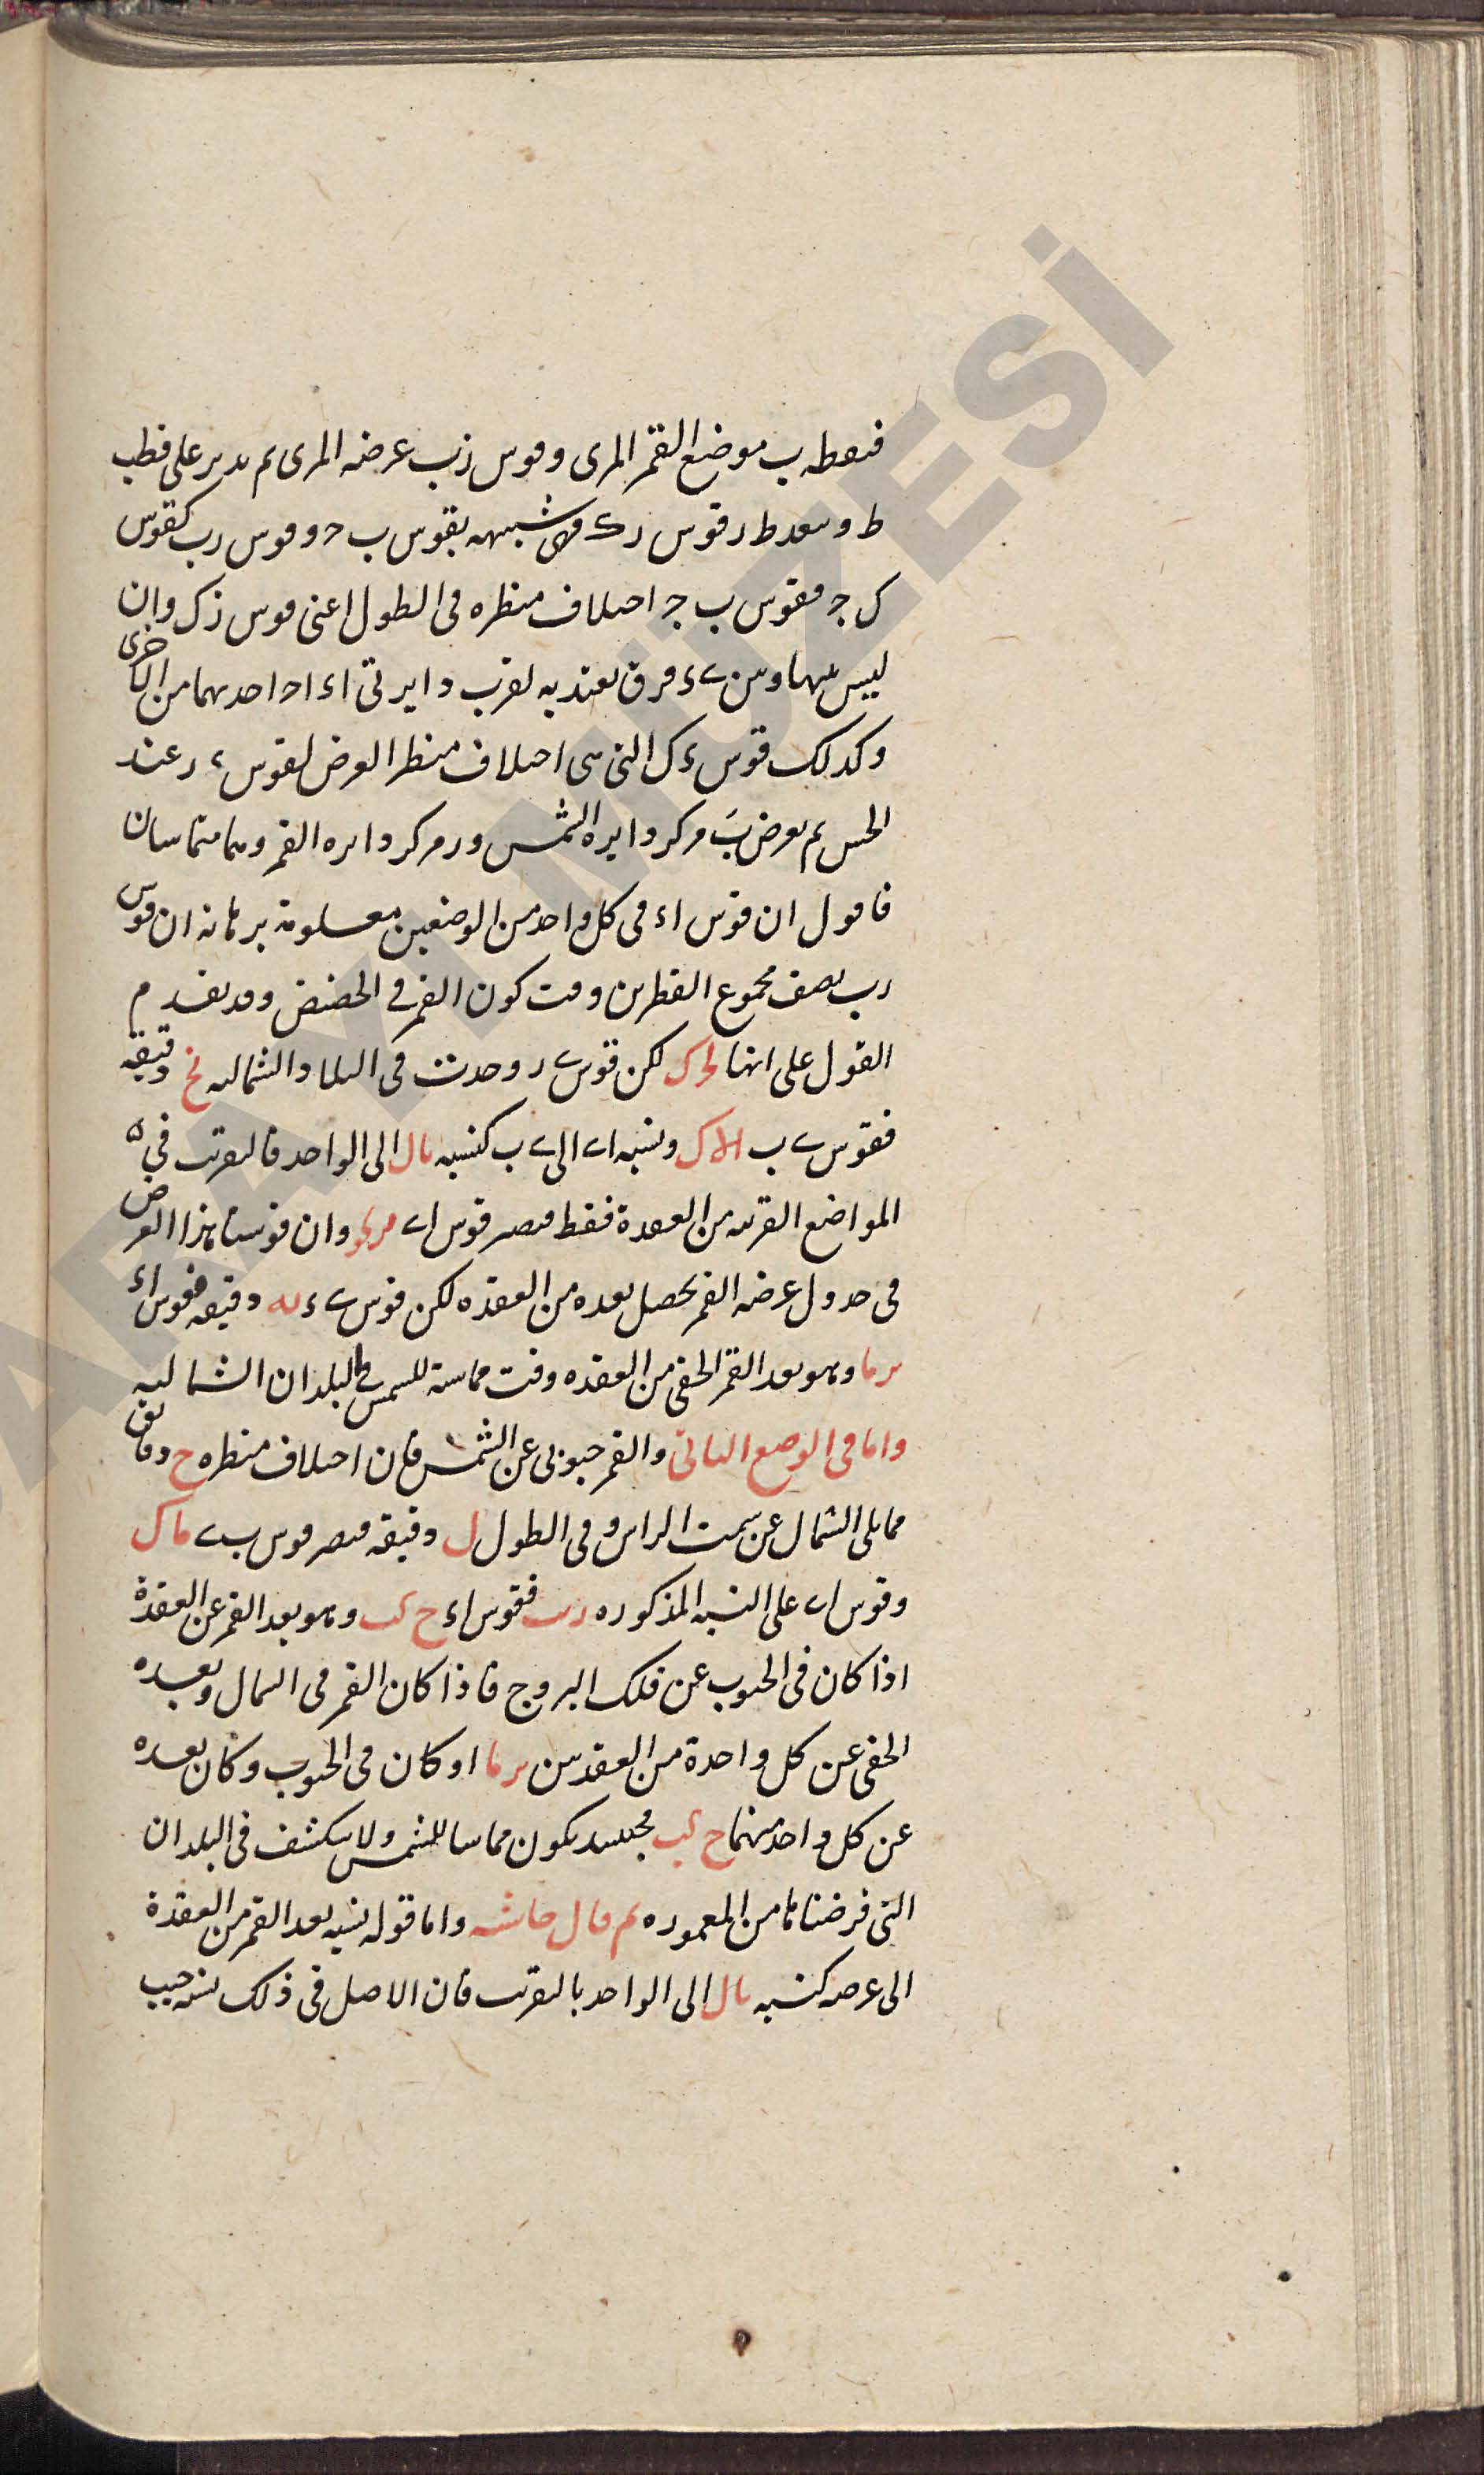 فنقطه ب موضع القمر المرى وقوس زب عرضه المرى ثم ندير على قطب
ط وببعد ط ر قوس رك وهى شبيهه بقوس ب ح وقوس رب كقوس
ك ج فقوس ب ج اختلاف منظره فى الطول اعنى قوس زك وان
ليس بينها وبين ى ء فرق يعتد به لقرب دايرتى اء اح احديهما من الاخرى
وكذلك قوس ء ك التى هى اختلاف منظر العرض لقوس ء ر عند
الحس ثم نفرض ب مركز دايره الشمس و ر مركز دايره القمر وهما متماسان
فاقول ان قوس اء فى كل واحد من الوضعين معلومة برهانه ان قوس
رب نصف مجموع القطرين وقت كون القمر فى الحضيض وقد تقدم
القول على انها لح ك لكن قوس ى ر وجدت فى البلاد الشماليه نح دقيقه
فقوس ى ب ا لا ك ونسبه اى الى ى ب كنسبه يا ل الى الواحد فالتقريب فى ه
المواضع القريبه من العقدة فقط فتصير قوس اى وان قوسنا هذا العرض
فى جدول عرضه القمر يحصل بعده من العقده لكن قوس ى ء يه دقيقه فقوس اء
ير ما وهو بعد القمر الحقى من العقده وقت مماسة للشمس فى البلدان الشماليه
واما فى الوضع الثانى والقمر جنوبى عن الشمس فان اختلاف منظره ح دقايق
مما يلى الشمال عن سمت الراس وفى الطول ل دقيقه فتصير قوس ب ى ما ك
وقوس اى على النسبه المذكوره ر ب فقوس اء ح كب وهو بعد القمر عن العقدة
اذا كان فى الجنوب عن فلك البروج فاذا كان القمر فى الشمال وبعده
الحقى عن كل واحدة من العقدتين ير ما او كان فى الجنوب وكان بعده
عن كل واحد منهما ح كب فحينئذ يكون مماسا للشمس ولا ينكشف فى البلدان
التى فرضناها من المعموره ثم قال حاشيه واما قوله نسبه بعد القمر من العقدة
الى عرضه كنسبه يا ل الى الواحد بالتقريب فان الاصل فى ذلك نسبه جيب